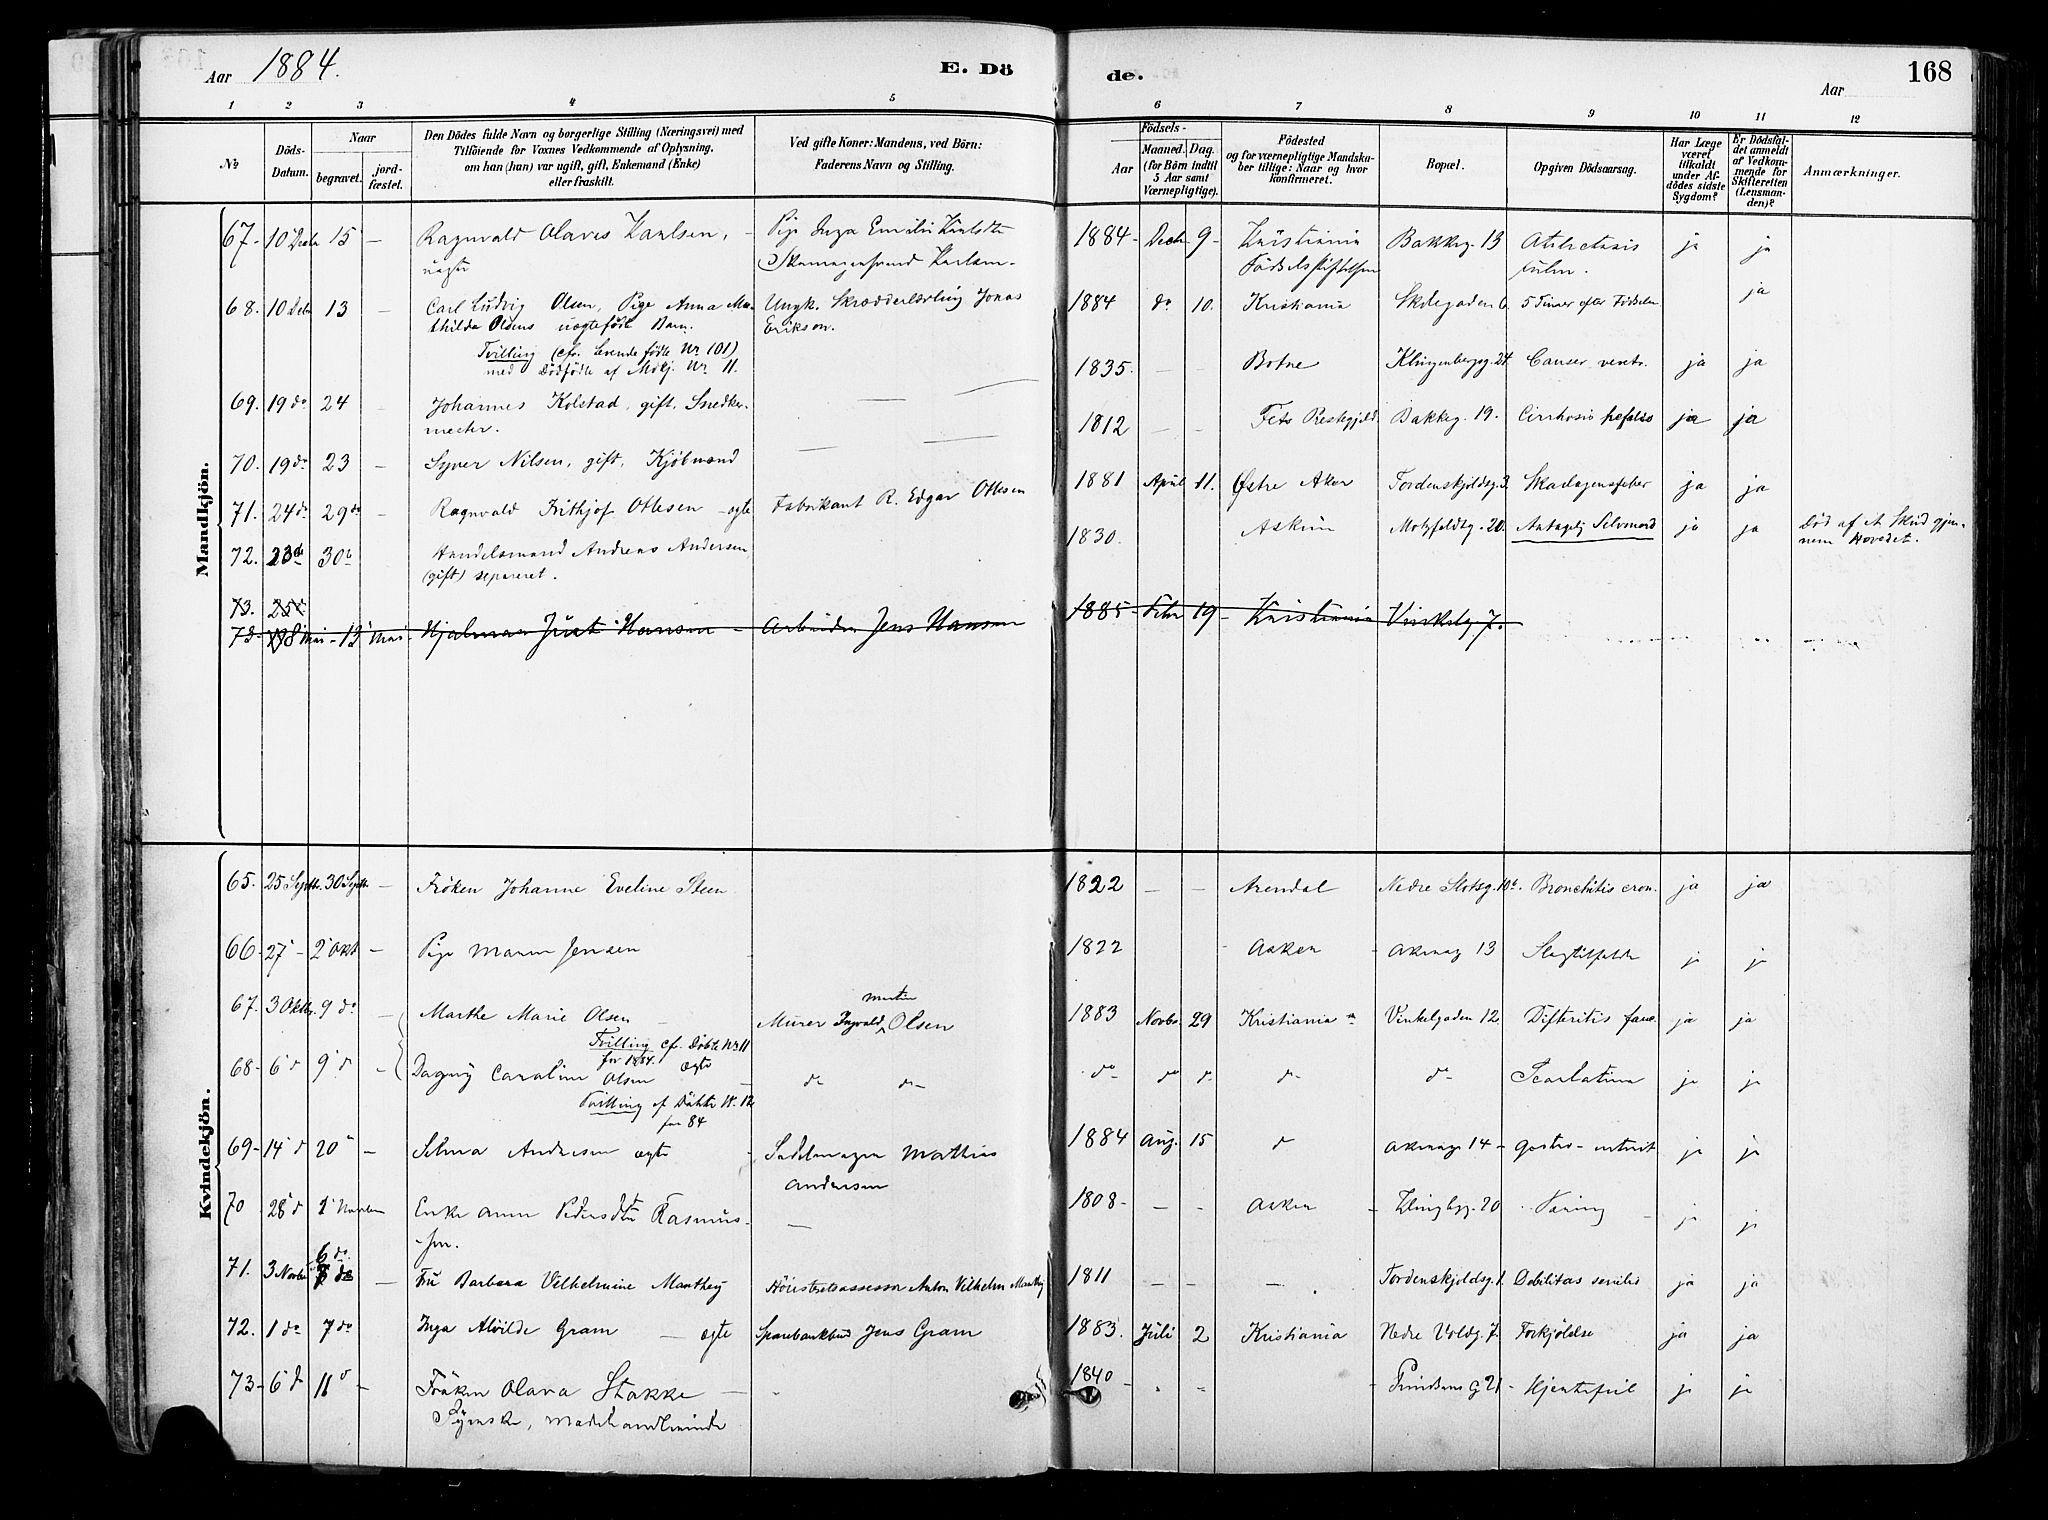 Aar 1884.
E. Dö
de.
Aar
168
1 2 3 4 5 6 7 8 9 10 11 12
No
Döds-Datum.
Naar
begravet.
jord-fæstet.
Den Dödes fulde Navn og borgerlige Stilling (Næringsvei) med
Tilföiende for Voxnes Vedkommende af Oplysning,
om han (hun) var ugift, gift, Enkemand (Enke)
eller fraskilt.
Ved gifte Koner: Mandens, ved Börn:
Faderens Navn og Stilling.
Födsels-
Aar
Maaned. Dag.
(for Börn indtil
5 Aar samt
Værnepligtige).
Födested
og for værnepligtige Mandska-
ber tillige: Naar og hvor
konfirmeret.
Bopæl.
Opgiven Dödsaarsag.
Har Læge
været
tilkaldt
under Af-
dödes sidste
Sygdom?
Er Dödsfal-
det anmeldt
af Vedkom-
mende for
Skifteretten
(Lensman-
den)?
Anmærkninger.
Mandkjön.
67- 10 Decbr 15 - Ragnvald Olaves Karlsen, - Pige Inga Emilie 1884- Decbr 9- Kristiania Bakkeg. 13 ja ja
uægte Karlsen- Födselsstiftelsen
68. 10 Decbr 13 - Carl Ludvig Olsen, Pige Anna Ma- Ungk. Skrædderlærling Jonas 1884 do 10. Kristiania Skolegaden 6. 5 Timer efter Fødselen ja
thilde Olsens uægtefödte Barn. Erikson.
Tvilling (cfr. levende födte Nr 101)
med Dödfödte af Mdkj. Nr 11.
69. 19 do 24 Johannes Kolstad, gift, Snedker- 1835. - - Botne Klingenbergg. 24. Cancer ventr. ja ja
mester.
70. 19 do 23 - Syver Nilsen, gift, Kjöbmand 1812 - - Fets Prestegjeld. Bakkeg. 19. Cirrhosis hepatis ja ja
71. 24 do 29 do - Ragnvald Frithjof Ottesen - ægte Fabrikant R. Edgar Ottesen 1881 April 11. Östre Aker Tordenskjoldsg. 3. Skarlagensfeber ja ja
72. 23 do 30 Handelsmand Andreas Andersen 1830. Askim Motzfeldtsg. 20. Antagelig Selvmord ja ja Död af et Skud gjen-
(gift) separeret. nem Hovedet.
73. 25
73- 8 Mai - 13 Mai - Hjalmar Just Hansen - Arbeider Jens Hansen 1885- Febr 19- Kristiania Vinkelg. 7.
Kvindekjön.
65. 25 Septbr. 30 Septbr. - Fröken Johanne Eveline Steen 1822 - - Arendal Nedre Slotsg. 10 b. Bronchitis cron. ja ja
66- 27 - 2 Okt - Pige Maren Jensen 1822 Asker - Akersg 13 Slagtilfælde ja ja
67. 3 Oktbr. 9 do - Marthe Marie Olsen - Murer Ingvald Martin Olsen 1883 Novbr. 29 Kristiania Vinkelgaden 12. Difteritis fauc. ja ja
Tvilling cf. Döbte Nr 11
for 1884.
68- 6 d 9 d - Dagny Caroline Olsen ægte - do do do do d do do Scarlatina ja ja
Tvilling cf Döbte N. 12
for 84
69- 14 d 20 - Selma Andersen ægte - Sadelmager Mathias 1884 Aug. 15 d Akersg 14 - gastro-enterit ja ja
Andersen
70 28 d 1 Novbr Enke Anne Pedersdtr Rasmus- 1808- - - Asken - Klingbgg. 20 ja ja
sen.
71. 3 Novbr 6 do - Fru Barbara Vilhelmine Manthey Höiesteretsassessor Anton Vilhelm Manthey 1811 - - - Tordenskjoldsg. 1. Debilitas senilis ja ja
72. 1 do 7 do Inga Alvilde Gram - ægte Sparebankbud Jens Gram 1883. Juli 2 Kristiania Nedre Voldg. 7. Forkjölelse ja ja
73- 6 d 11 d - Fröken Olava Stakke - 1840 - Prindsens G 21 - Hjertefeil ja ja
Syerske, Modehandlerinde